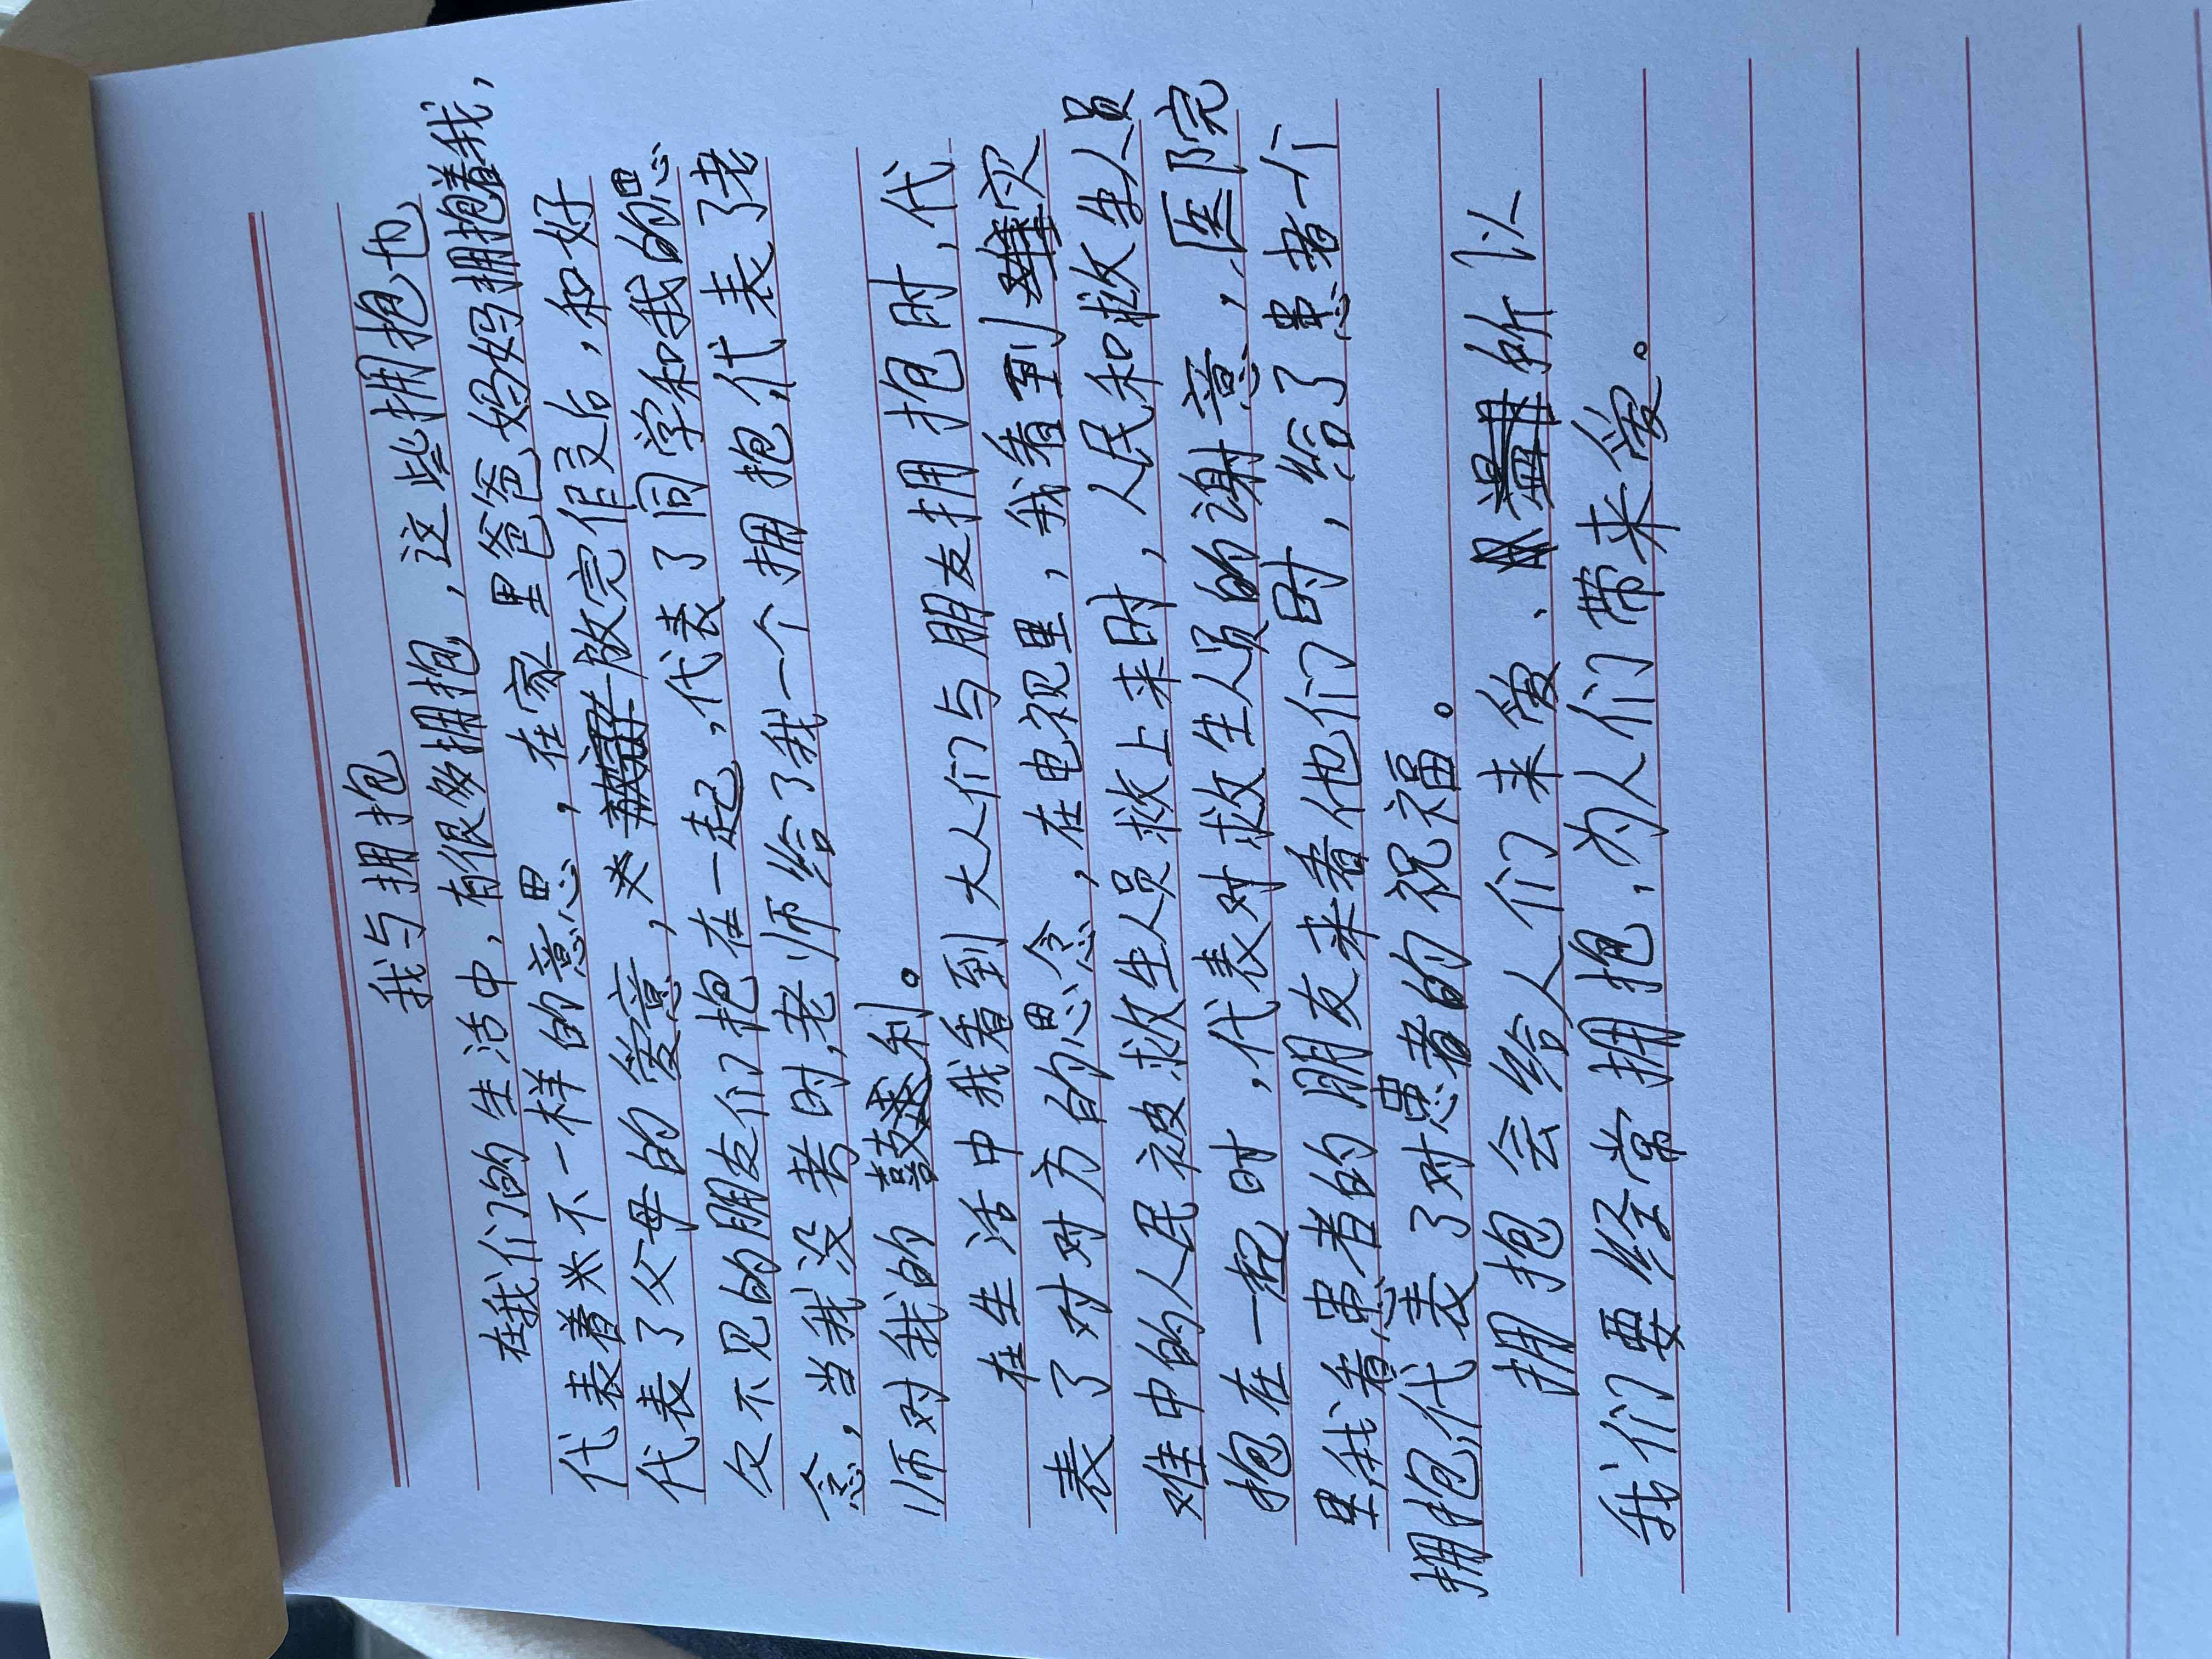 我与拥抱
在我们的生活中，有很多拥抱，这些拥抱也
代表着不一样的意思，在家里爸爸妈妈拥抱着我，
代表了父母的爱意，放完假之后，和好
久不见的朋友们抱在一起，代表了同学和我的思
念，当我没考时，老师给了我一个拥抱，代表了老
师对我的鼓利。
在生活中我看到大人们与朋友拥抱时，代
表了对对方的思念，在电视里，我看到灾
难中的人民被救生人员救上来时，人民和救生人员
抱在一起时，代表对救生人员的谢意，医院
里我看患者的朋友来看他们时，给了患者一个
拥抱代表了对患者的祝福。
拥抱会给人们来爱、所以
我们要经常拥抱，为人们带来爱。